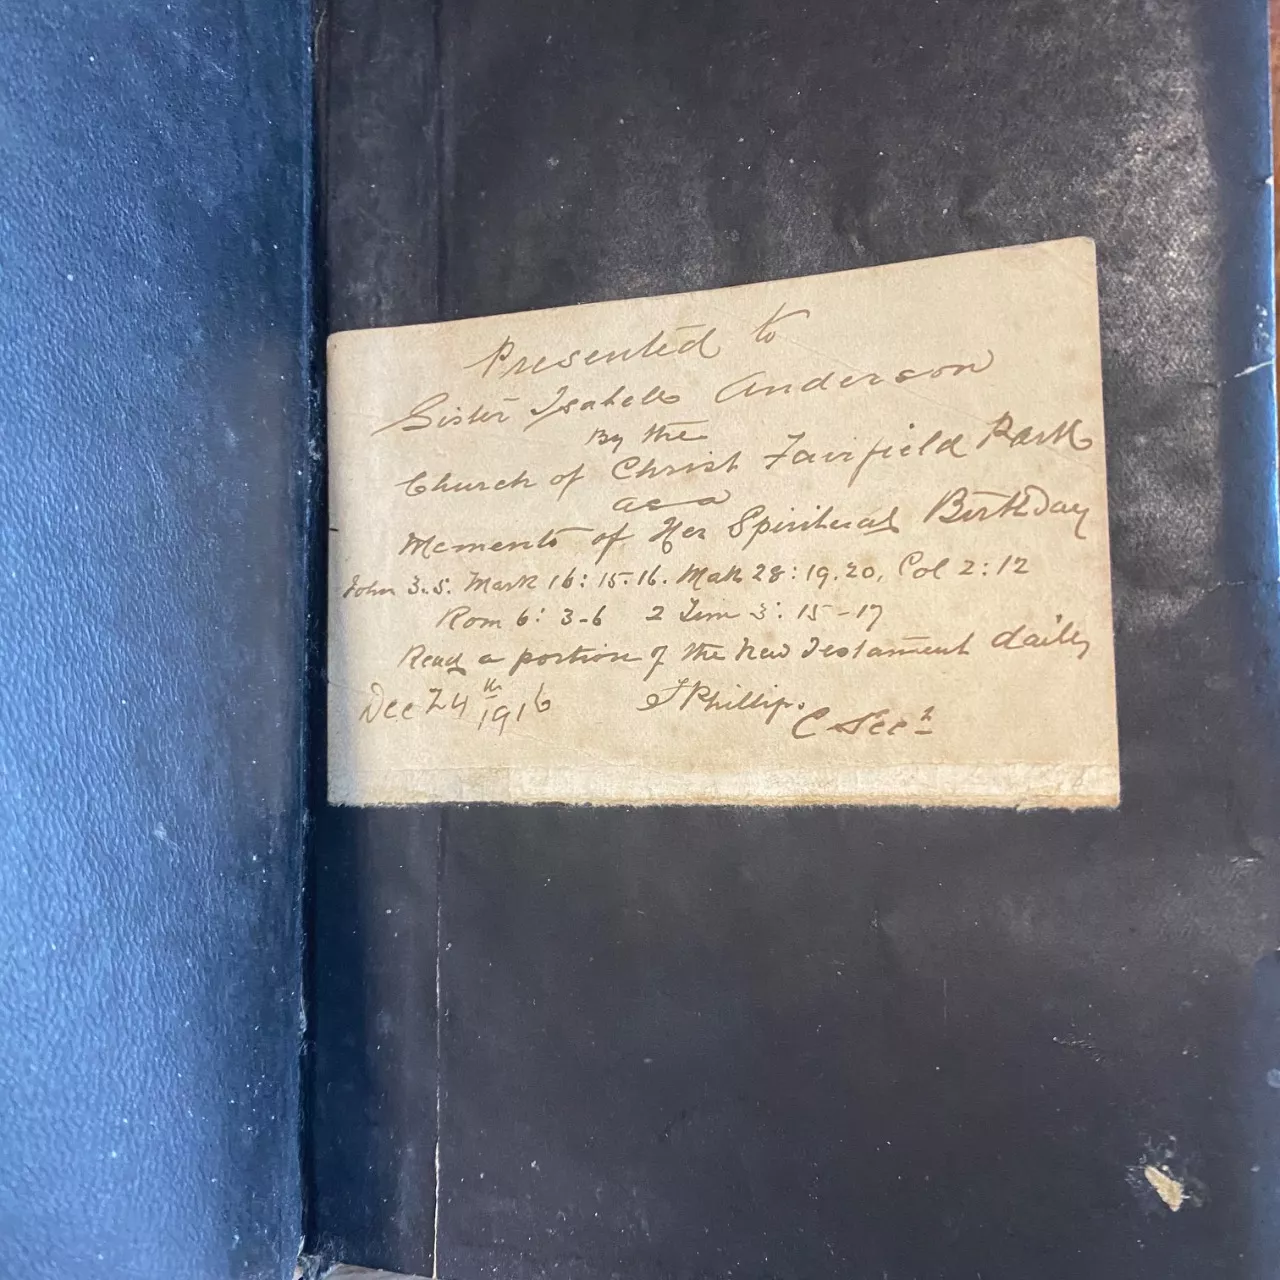 Presented to
Sister Isabella Anderson
By the
Church of Christ Fairfield Park
as a
Memento of Her Spiritual BirthDay
John 3.5. Mark 16:15.16. Matt 28:19.20, Col 2:12
Rom 6: 3-6 2 Tim 3: 15-17
Read a portion of the New Testament daily
Dec 24th 1916 Phillips.
C Sec